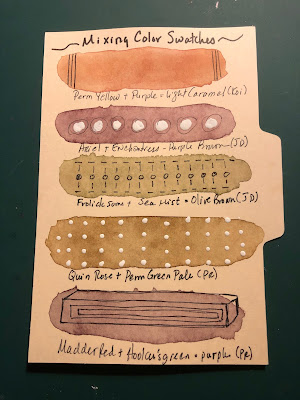 Mixing Color Swatches
Perm Yellow + Purple = Light Caramel (Koi)
Ariel + Enchantress - Purple Brown (JD)
Frolicksome + Sea Mist = Olive Brown (JD)
Quin Rose + Perm Green Pale (PR)
Madder Red + Hooker's green = purple (PR)